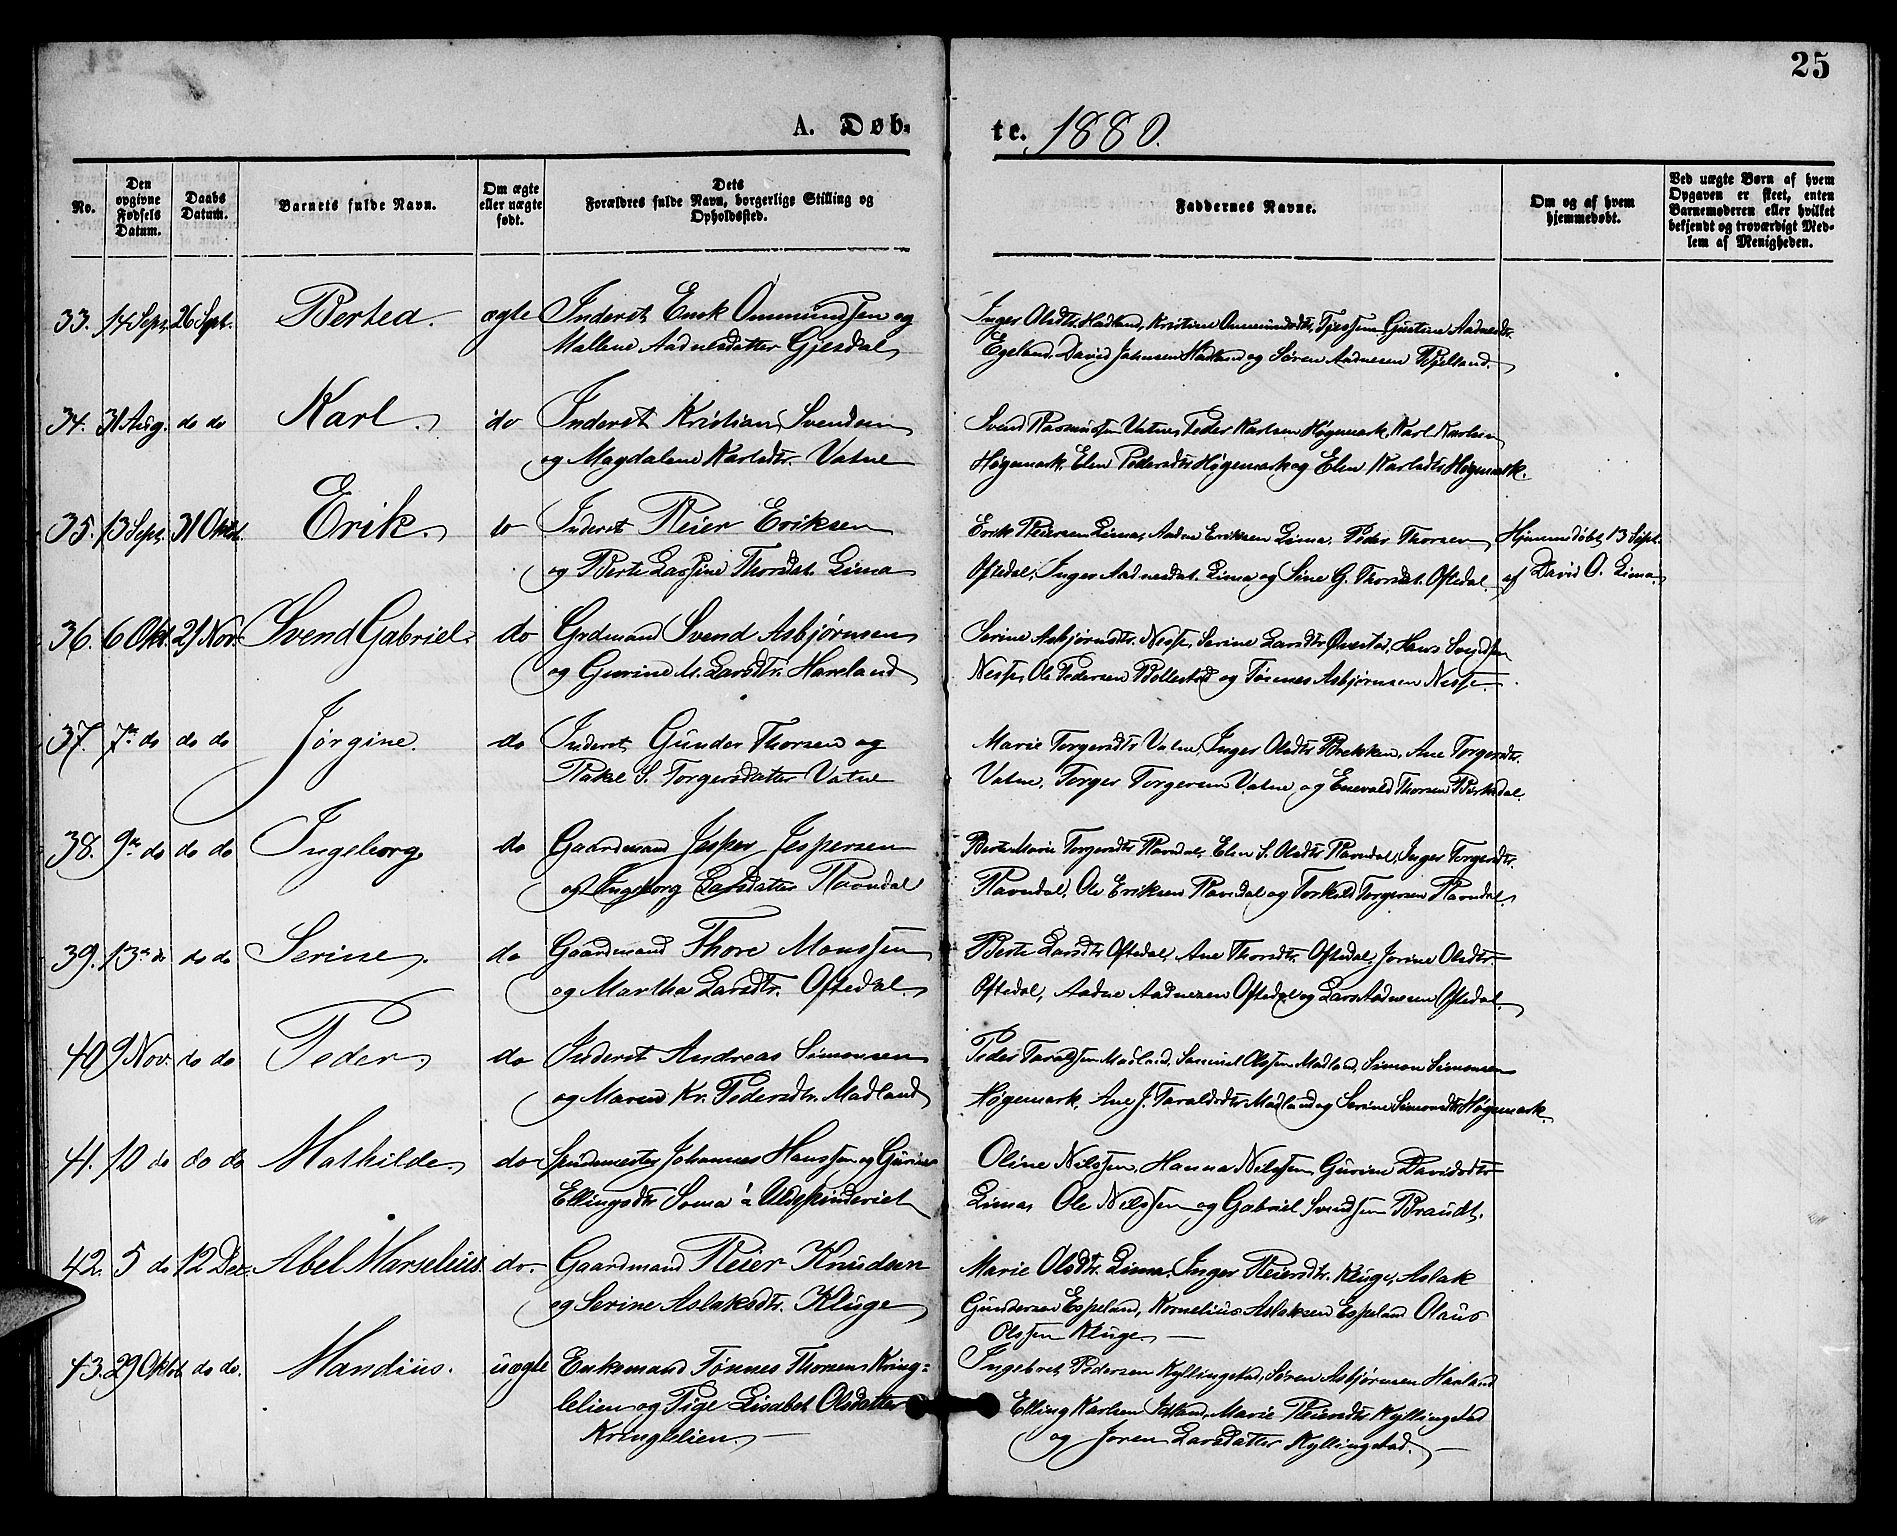 25
A. Døb-
te. 1880.
No.
Den opgivne Fødsels Datum.
Daabs Datum.
Barnets fulde Navn.
Om ægte eller uægte født.
Dets Forældres fulde Navn, borgerlige Stilling og Opholdssted.
Faddernes Navne.
Om og af hvem hjemmedøbt.
Ved uægte Børn af hvem Opgaven er skeet, enten Barnemoderen eller hvilket bekjendt og troværdigt Medlem af Menigheden.
33. 14 Sept. 26 Sept. Bertea. ægte Inderst Erik Ommundsen og
Mallene Aadnesdatter Gjesdal
Inger Olsdtr. Madland, Kristine Ommundsdtr. Gustine Aadnesdtr.
Egeland David Johnsen Madland og Søren Aadnesen Bjelland.
34. 31 Aug. do do Karl. do Inderst Kristian Svendsen
og Magdalene Karlsdtr. Vatne
Svend Rasmussen Vatne, Peder Karlsen Høgemark, Karl Karlsen
Høgemark, Elen Pedersdtr Høgemark og Elen Karlsdtr Høgemark.
35. 13 Sept. 31 Oktob. Erik. do Inderst Reier Eriksen
og Berte Lassine Thorsdat. Lima
Erik Reiersen Lima, Aadne Eriksen Lima, Peder Thorsen
Oftedal, Inger Aadnesdat. Lima og Sine G. Thorsdat. Oftedal.
Hjemmedøbt 13 Sept.
af David O. Lima.
36. 6 Okt. 21 Nov. Svend Gabriel. do Grdmand Svend Asbjørnsen
og Gurine M. Larsdtr. Haveland
Serine Asbjørnsdtr. Nesse, Serine Larsdtr. Hans Svendsen
Nesse, Ole Pedersen Bollestad og Tønnes Asbjørnsen Nesse.
37. 7de do do do Jørgine. do Inderst Gunder Thorsen og
Rakel S. Torgersdatter Vatne
Marie Torgersdtr Vatne, Inger Olsdtr Brekken, Ane Torgersdtr.
Vatne, Torger Torgersen Vatne og Enevald Thorsen Birkedal.
38. 9de do do do Ingeborg do Gaardmand Jesper Jespersen
og Ingeborg Larsdatter Ravndal
Berte Marie Torgersdtr Ravndal, Elen S. Olsdtr Ravndal, Inger Torgersdtr.
Ravndal, Ole Eriksen Ravndal og Torkild Torgersen Ravndal.
39. 13de do do do Serine. do Gaardmand Thore Monssen
og Martha Larsdtr. Oftedal.
Berte Larsdtr Oftedal, Ane Thorsdtr. Oftedal, Jorine Olsdtr.
Oftedal, Aadne Aadnesen Oftedal og Lars Aadnesen Oftedal.
40 9 Nov. do do Peder. do Inderst Andreas Simonsen
og Maren Kr. Pedersdtr. Madland
Peder Taraldsen Madland, Samuel Olssen Madland, Simon Simonsen
Høgemark, Ane J. Taraldsdtr Madland og Serine Simonsdtr Høgemark.
41. 10 do do do Mathilde do Spindemester Johannes Hanssen og Gurine
Ellingsdtr Soma á Uldspinderiet
Oline Nilssen, Hanna Nilssen, Gurine Davidsdtr
Lima, Ole Nilssen og Gabriel Svendsen Braudt.
42. 5 do 12 Dec. Abel Marselius. do. Gaardmand Reier Knudsen
og Serine Aslaksdtr. Kluge
Marie Olsdtr. Lima, Inger Reiersdtr. Kluge, Aslak
Gundersen Espeland, Kornelius Aslaksen Espeland Olaus
Olssen Kluge.
43. 29 Oktob. do do. Mandius. uægte Enkemand Tønnes Thorsen Kring-
lelien og Pige Lisabet Olsdatter
Kringlelien.
Ingebret Pedersen Kyllingstad, Søren Asbjørnsen Haaland
Elling Karlsen Marie Reiersdtr Kyllingstad
og Joren Larsdatter Kyllingstad.